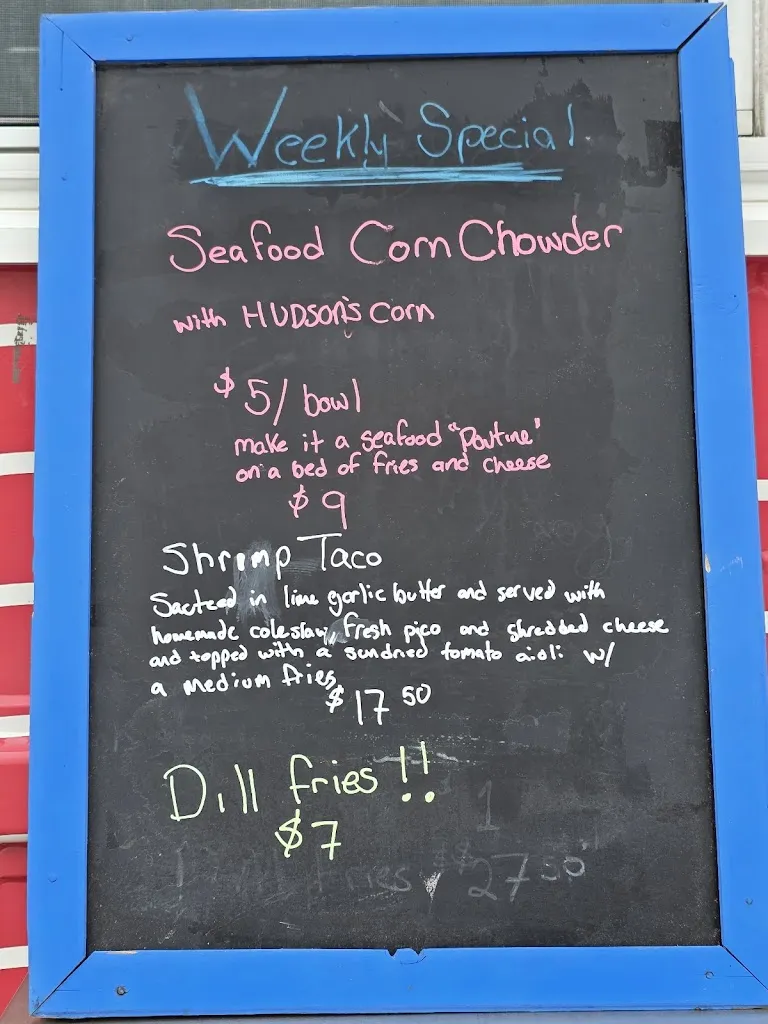 Weekly Special
Seafood Corn Chowder
with HUDSON'S corn
$5/ bowl
make it a seafood "Poutine"
on a bed of fries and cheese
$9
Shrimp Taco
Sauteed in lime garlic butter and served with
homemade coleslaw, fresh pico and shredded cheese
and topped with a sundried tomato aioli w/
a medium fries
$17 50
Dill fries!!
$7
fries $27 50